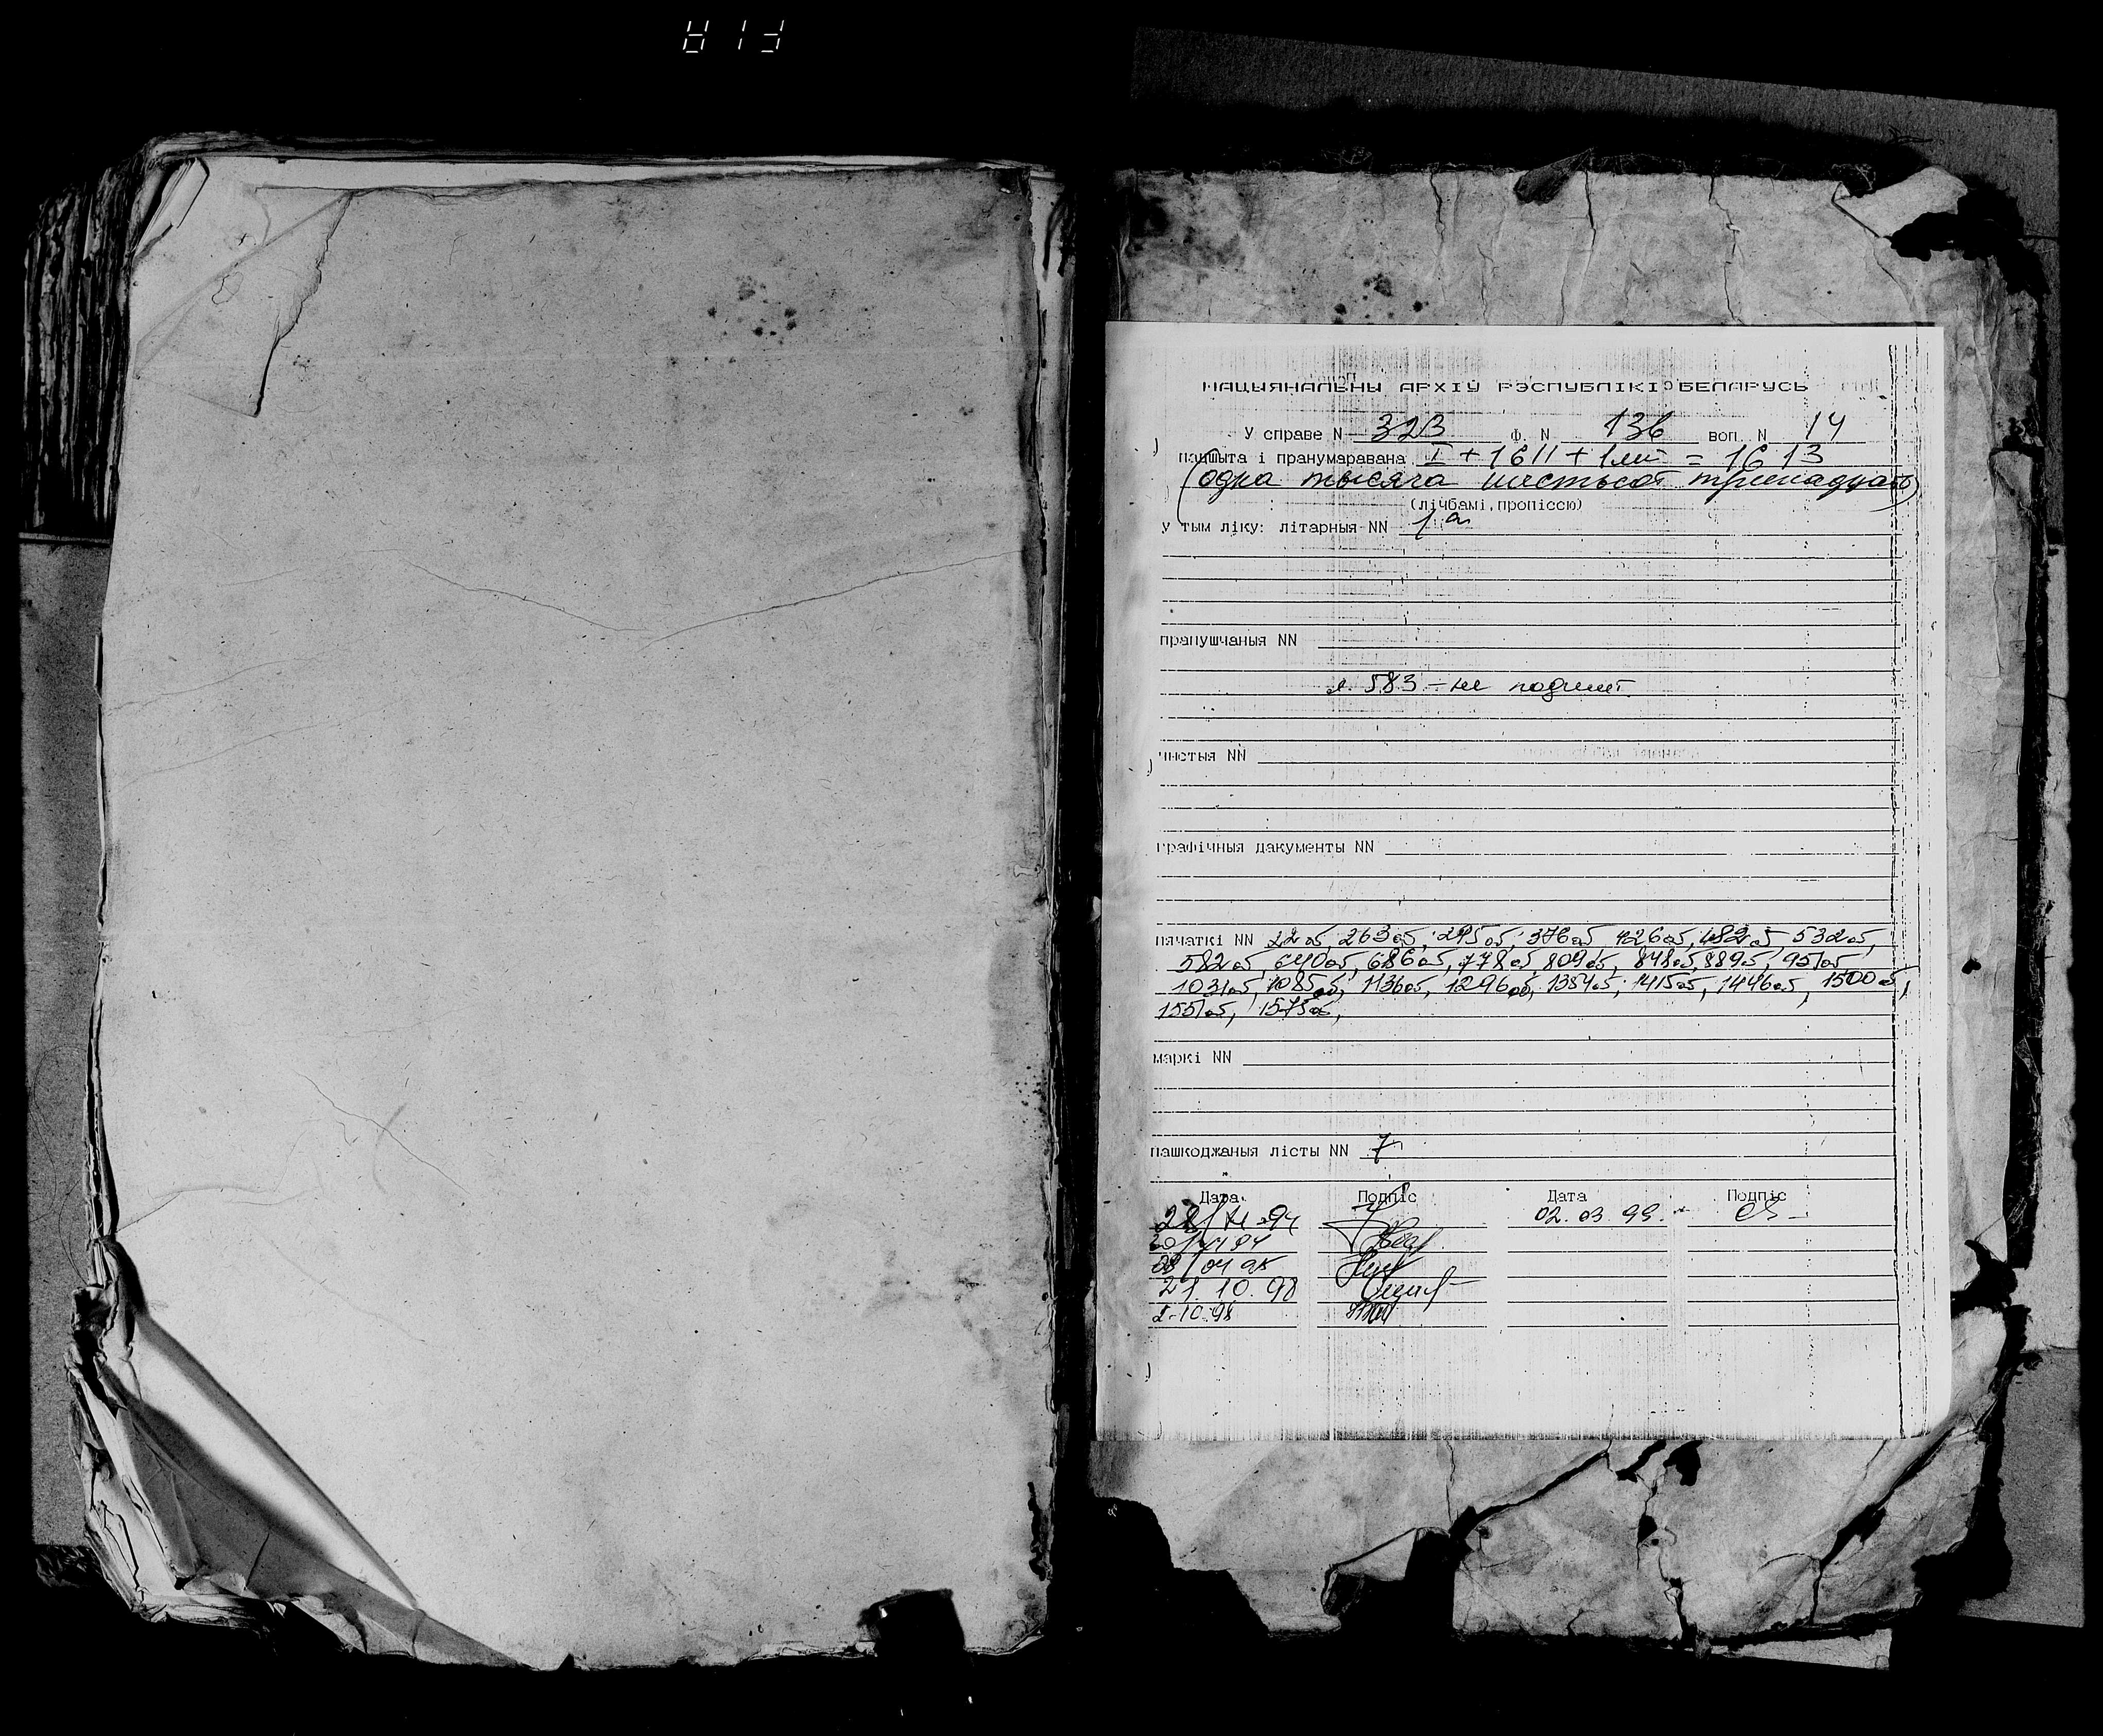 НАЦЫЯНАЛЬНЫ АРХІЎ РЭСПУБЛІКІ БЕЛАРУСЬ
У справе N 323 Ф. N 136 воп. N 14
падшыта і пранумаравана I + 1611 + 1 лит = 1613
(одна тысяча шестьсот тринадцать)
(лічбамі, пропіссю)
у тым ліку: літарныя NN 1а
прапушчаныя NN
л. 583 - не подшит
чыстыя NN
графічныя дакументы NN
пячаткі NN 22 об, 263 об, 295 об, 376 об, 426 об, 482 об, 532 об,
582 об, 640 об, 686 об, 778 об, 809 об, 848 об, 889 об, 951 об,
1031 об, 1085 об, 1136 об, 1296 об, 1384 об, 1415 об, 1446 об, 1500 об,
1551 об, 1575 об,
маркі NN
пашкоджаныя лісты NN 7
Дата Подпіс Дата Подпіс
02.03.99.
21.10.98